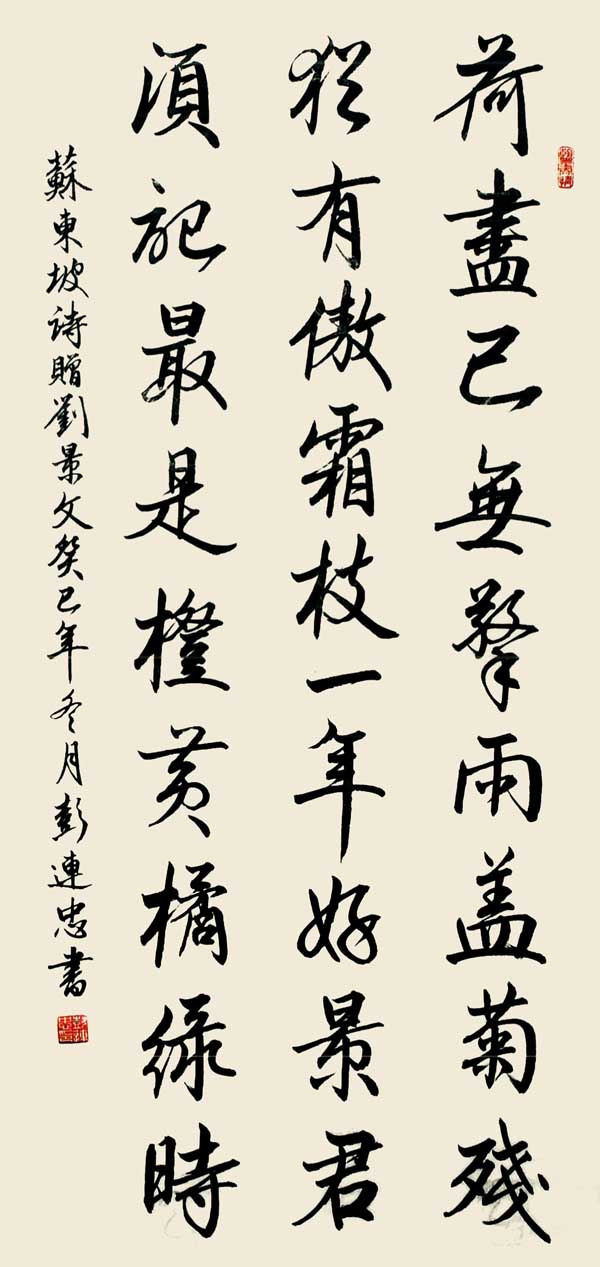 荷盡已無擎雨盖菊殘
猶有傲霜枝一年好景君
須記最是橙黄橘绿時
蘇東坡诗贈劉景文癸巳年冬月彭連忠書